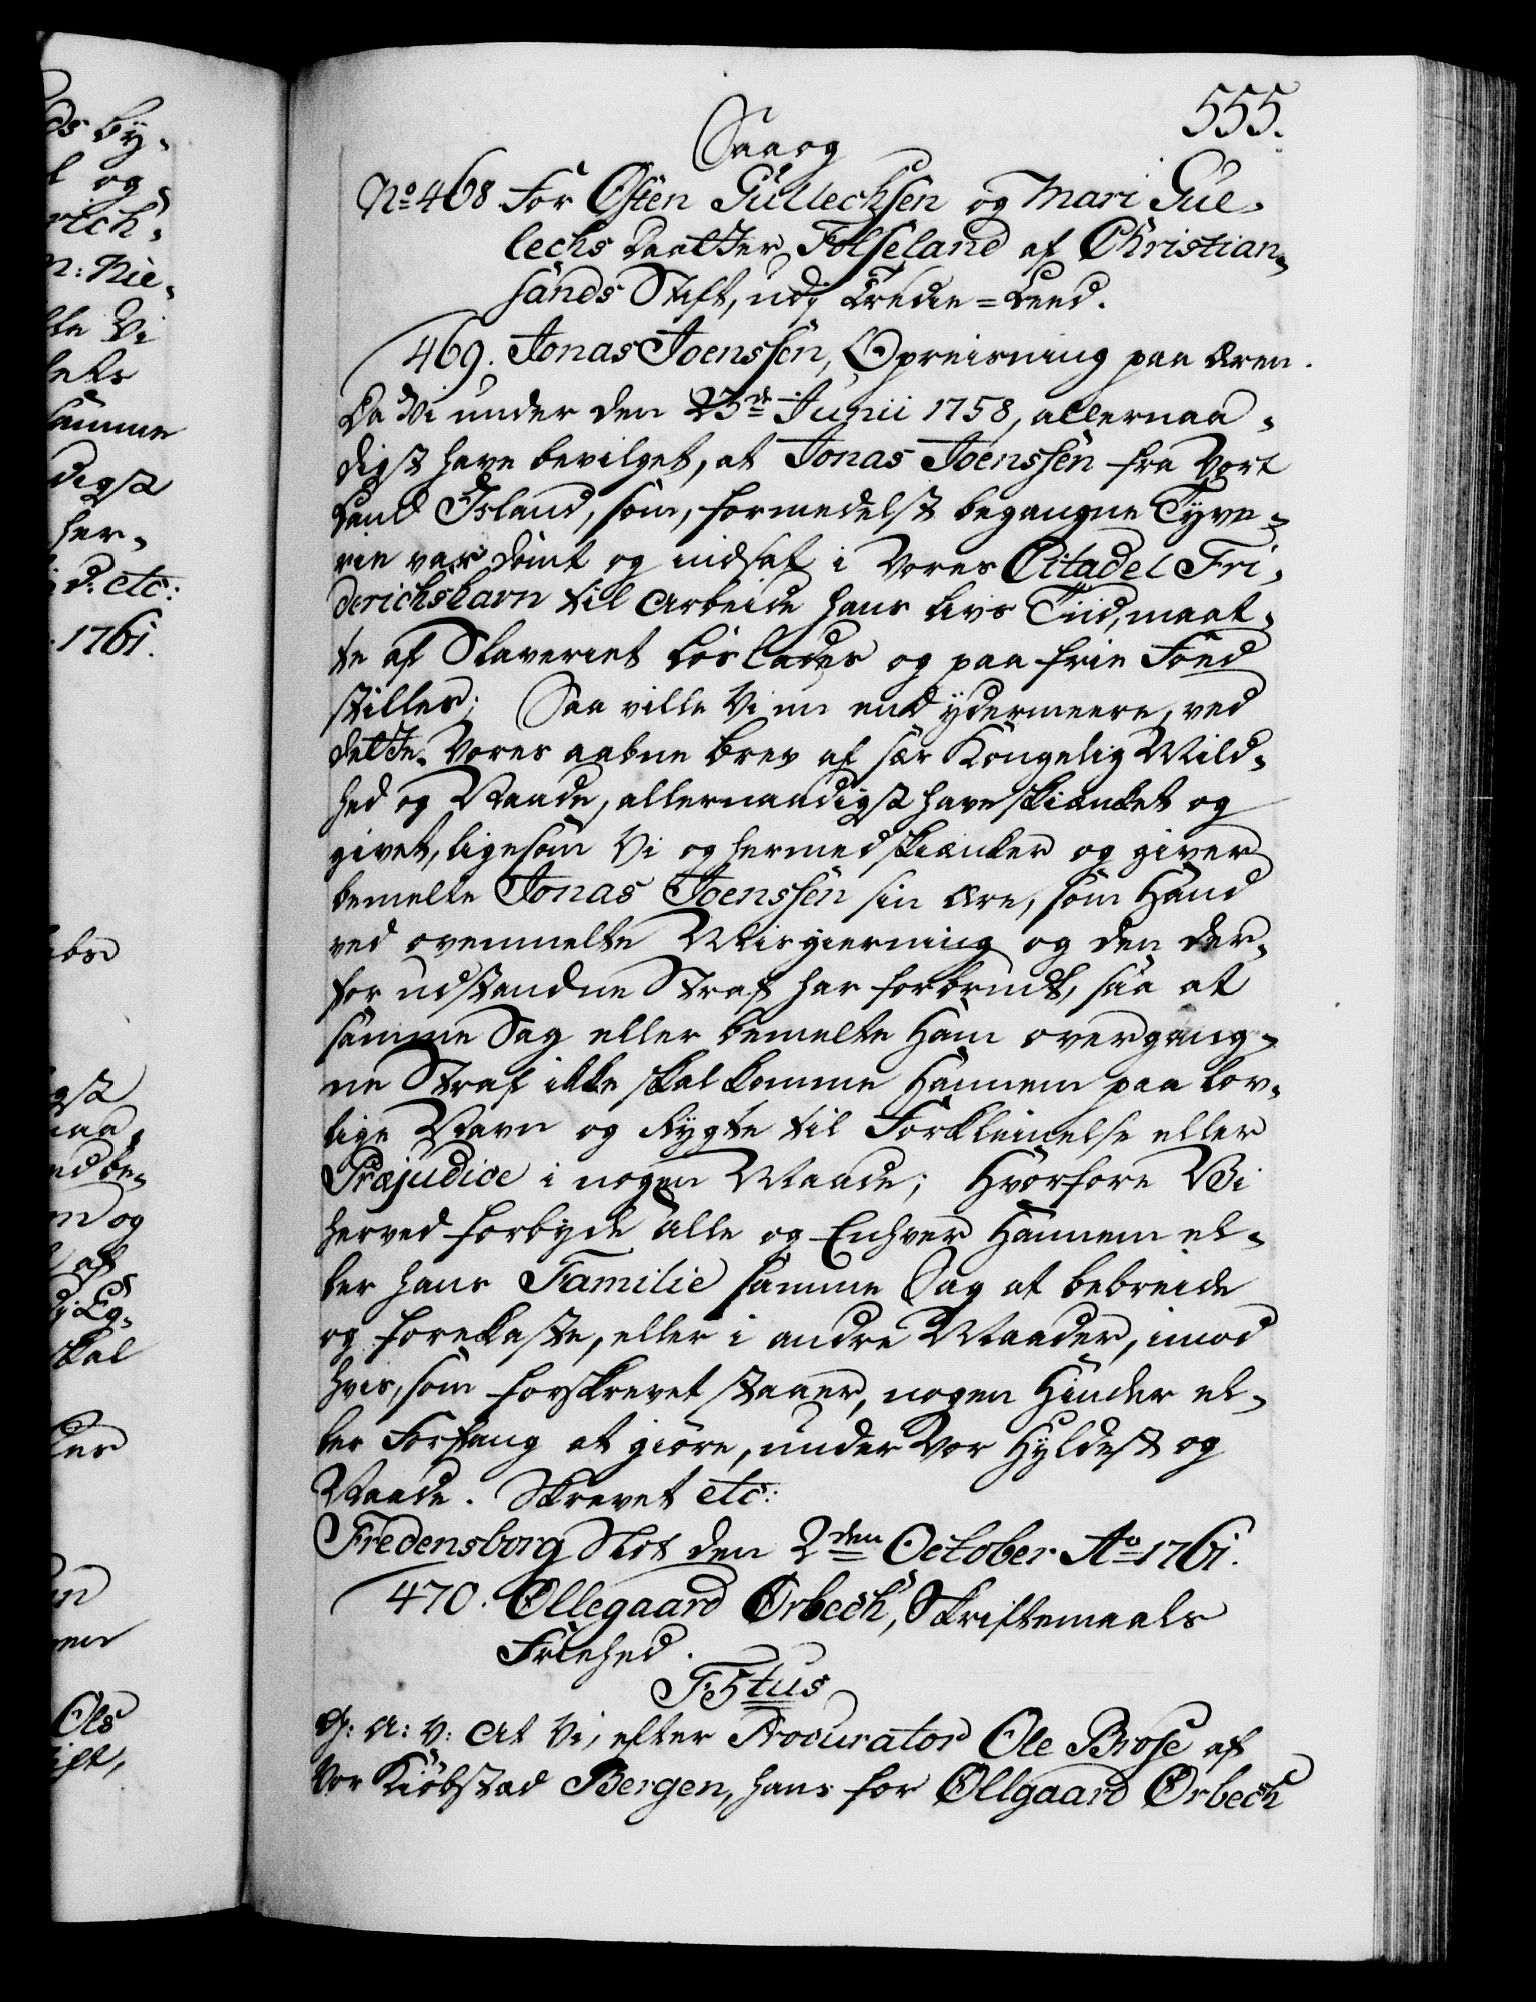 555.
Saa og
No. 468 for Østen Gullechsen og Mari Gul-
lechs Daatter Folseland af Christian-
sands Stift, udj Tredie = Leed.
469. Jonas Joenssen, Opreisning paa Æren.
Da Vi under den 23de Junii 1758, allernaa-
digst have bevilget, at Jonas Joenssen fra Vort
Land Island, som, formedelst begangne Tyve-
rie var dömt og indsat i Vores Citadel Fri-
derichshavn til Arbeide hans Livs Tiid, maat-
te af Slaveriet löslades og paa frie Foed
stilles; Saa ville Vi nu end ydermeere, ved
dette Vores aabne Brev af sær Kongelig Mild-
hed og Naade, allernaadigst have skiænket og
givet, ligesom Vi og hermed skiænker og giver
bemelte Jonas Joenssen sin Ære, som Hand
ved ovenmelte Misgierning og den der-
for udstandne Straf har forbrudt, saa at
samme Sag eller bemelte Ham overgang-
ne Straf ikke skal komme Hannem paa lov-
lige Navn og Rygte til Forkleinelse eller
Præjudice i nogen Maade; Hvorfore Vi
herved forbyde alle og Enhver Hannem el-
ler hans Familie samme Sag at bebreide
og forekaste, eller i andre Maader, imod
hvis, som forskrevet staaer, nogen Hinder el-
ler Forfang at giöre, under Vor Hyldest og
Naade. Skrevet etc:
Fredensborg Slot den 2den October Ao 1761.
470. Øllegaard Ørbech, Skriftemaals
Friehed.
F5tus
G: A: V: At Vi, efter Procurator Ole Brose af
Vor Kiöbstad Bergen, hans for Øllgaard Ørbech
ds by-
l og
rich-
n: Nie-
lle Vi
samme
digst
her-
d: etc:
1761.
gst
naa-
ed be-
n og
af
skal
Ols
ift,